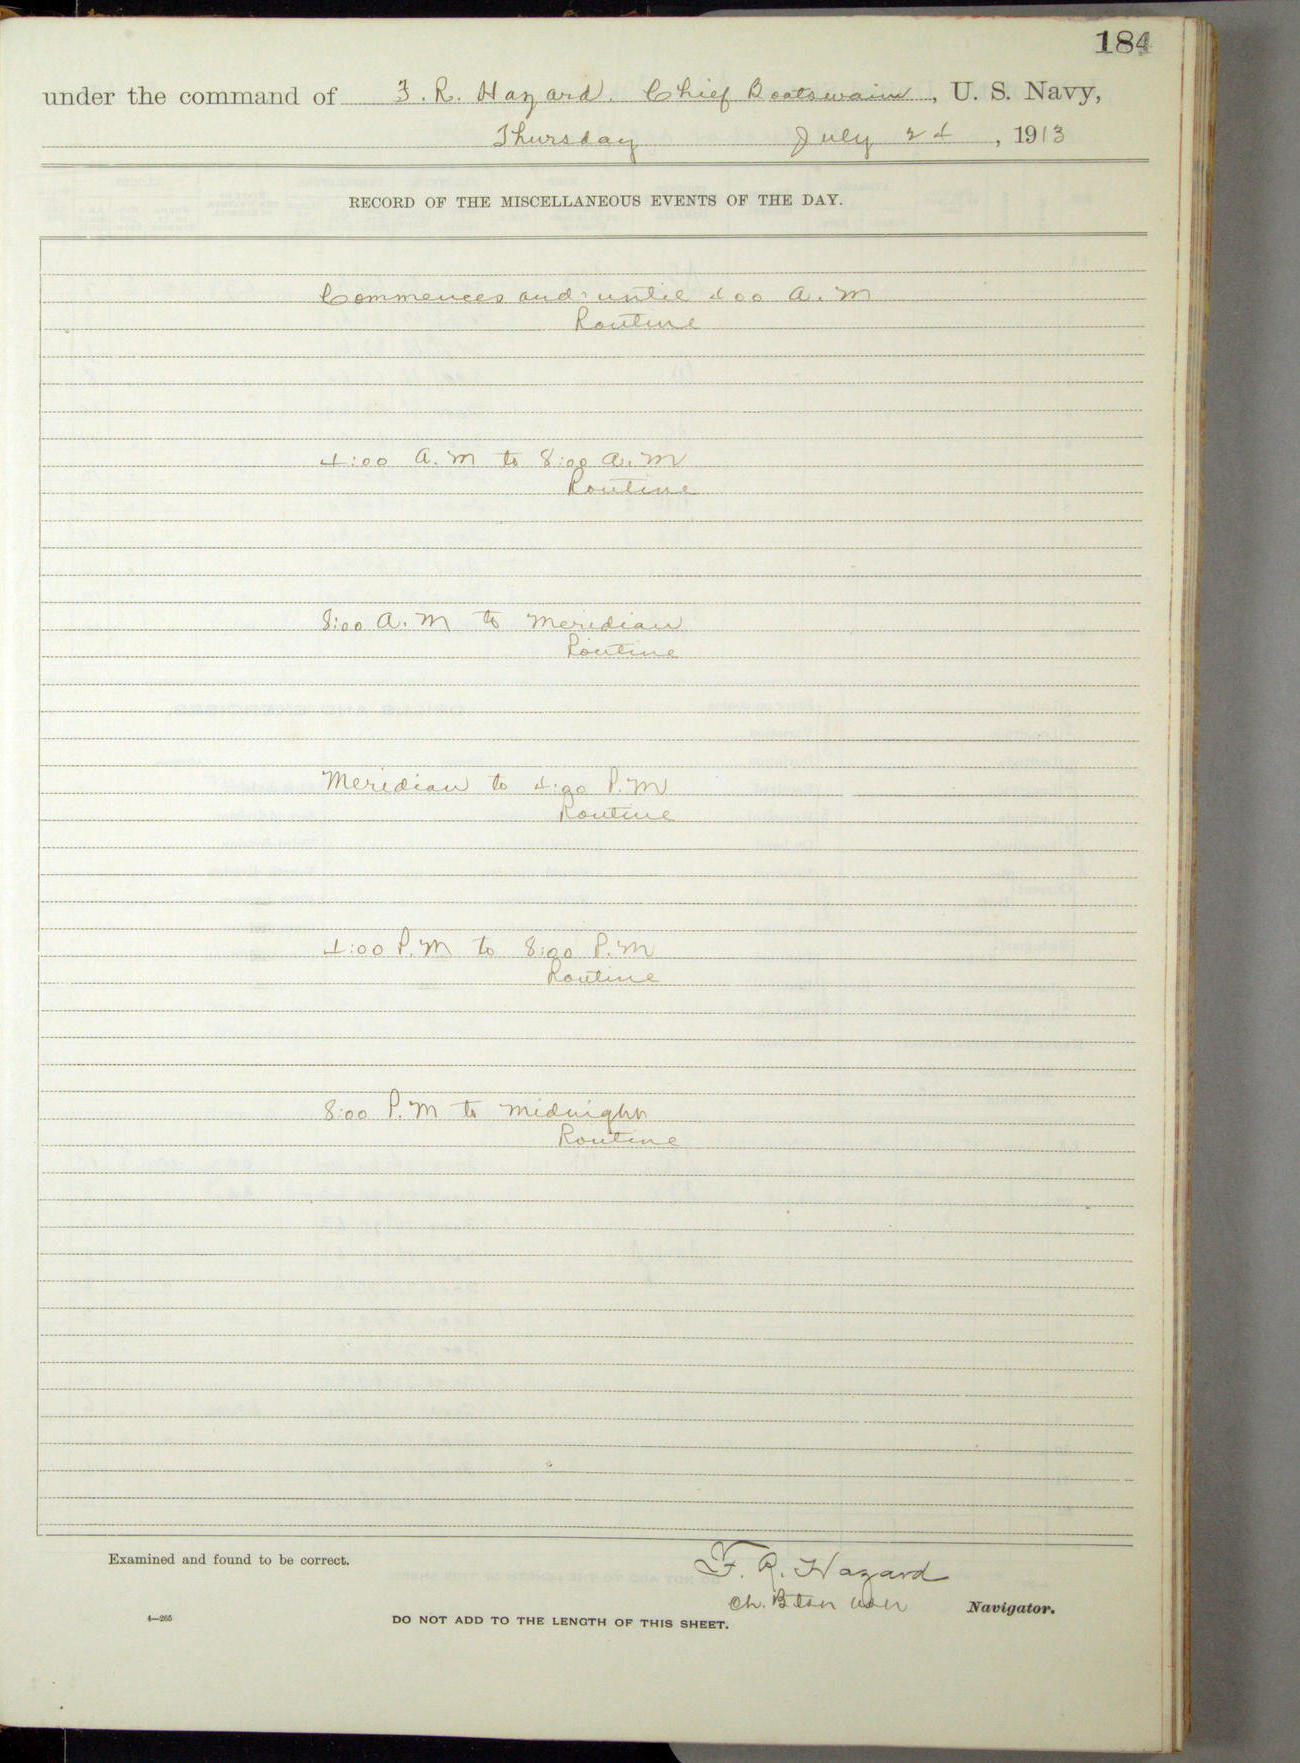 184
under the command of F. R. Hazard. Chief Boatswain, U. S. Navy,
Thursday July 24, 1913
RECORD OF THE MISCELLANEOUS EVENTS OF THE DAY.
Commences and until 4 00 A. M
Routine
4:00 A. M to 8:00 A. M
Routine
8:00 A. M to Meridian
Routine
Meridian to 4:00 P. M
Routine
4:00 P. M to 8:00 P. M
Routine
8:00 P. M to Midnight
Routine
Examined and found to be correct.
F. R. Hazard
Ch. Btsn USN Navigator.
4—265
DO NOT ADD TO THE LENGTH OF THIS SHEET.